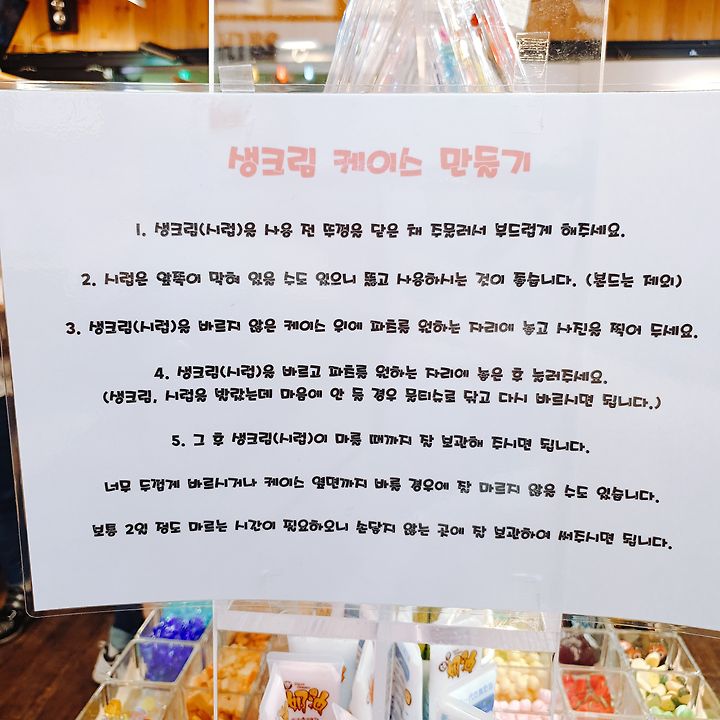 생크림 케이스 만들기
1. 생크림(시럽)을 사용 전 뚜껑을 닫은 채 주물러서 부드럽게 해주세요.
2. 시럽은 앞쪽이 막혀 있을 수도 있으니 뚫고 사용하시는 것이 좋습니다. (본드는 제외)
3. 생크림(시럽)을 바르지 않은 케이스 위에 파트를 원하는 자리에 놓고 사진을 찍어 두세요.
4. 생크림(시럽)을 바르고 파트를 원하는 자리에 놓은 후 눌러주세요.
(생크림, 시럽을 발랐는데 마음에 안 들 경우 물티슈로 닦고 다시 바르시면 됩니다.)
5. 그 후 생크림(시럽)이 마를 때까지 잘 보관해 주시면 됩니다.
너무 두껍게 바르시거나 케이스 옆면까지 바를 경우에 잘 마르지 않을 수도 있습니다.
보통 2일 정도 마르는 시간이 필요하오니 손닿지 않는 곳에 잘 보관하여 써주시면 됩니다.